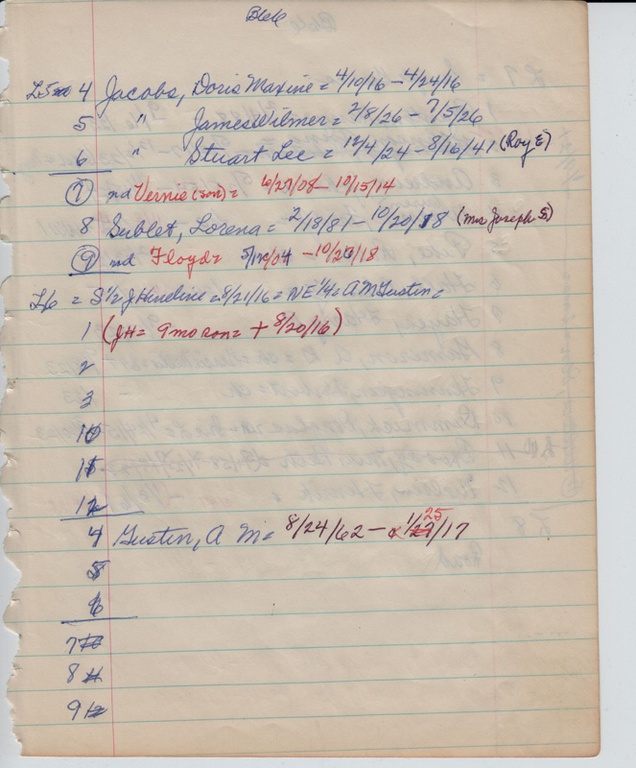 Blk6
L5 4 Jacobs, Doris Maxine = 4/10/16 - 4/24/16
5 " James Wilmer = 2/8/26 - 7/5/26
6 " Stuart Lee = 12/4/24 - 8/16/41 (Roy E)
7 nd Vernie (son) = 6/27/08 - 10/15/14
8 Sublet, Lorena = 2/18/81 - 10/20/18 (mrs Joseph S)
9 nd Floyd = - 10/23/18
L6 = S 1/2 J Hineline = 8/21/16 = NE 1/4 = A M Gustin =
1 (JH = 9 mo son = + 8/20/16)
2
3
10
11
12
4 Gustin, A M = 8/24/62 - 1/25/17
5
6
7
8
9